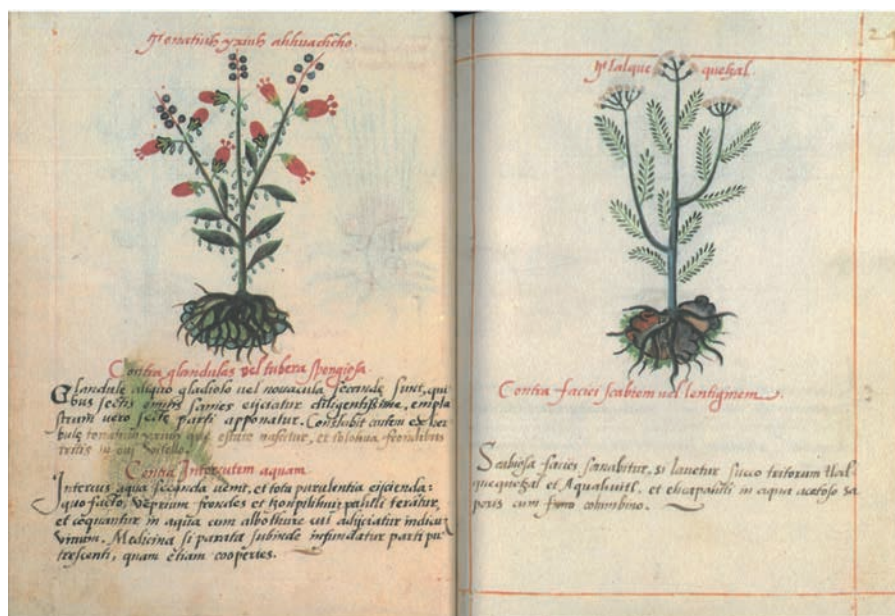 Tonatiuh yxiuh ahhuachcho.
Contra glandulas vel tubera spongiosa
Glandule aliquo gladiolo vel novacula secande sunt, qui
bus sectis omnis sanies eijciatur diligentissime, empla
strum vero secte parti apponatur. Constabit autem ex her
bule tonatiuh yxiuh que estate nascitur, et frondibus
tritis in ovi vitello.
Contra Intercutem aquam
Intercus aqua secanda venit, et tota purulentia eijcienda:
quo facto, Veprium frondes et pahtli teratur,
et coquantur in aqua cum albo thure cui adijciatur indicū
vinum. Medicina sic parata subinde infundatur parti pu
trescenti, quam etiam cooperies.
Tlalque quetzal
2
Contra faciei scabiem vel lentiginem
Scabiosa facies sanabitur, si lavetur succo tritorum tlal
quequetzal et Aquahuitl, et eheca pahtli in aqua acetoso sa
poris cum fimo columbino.